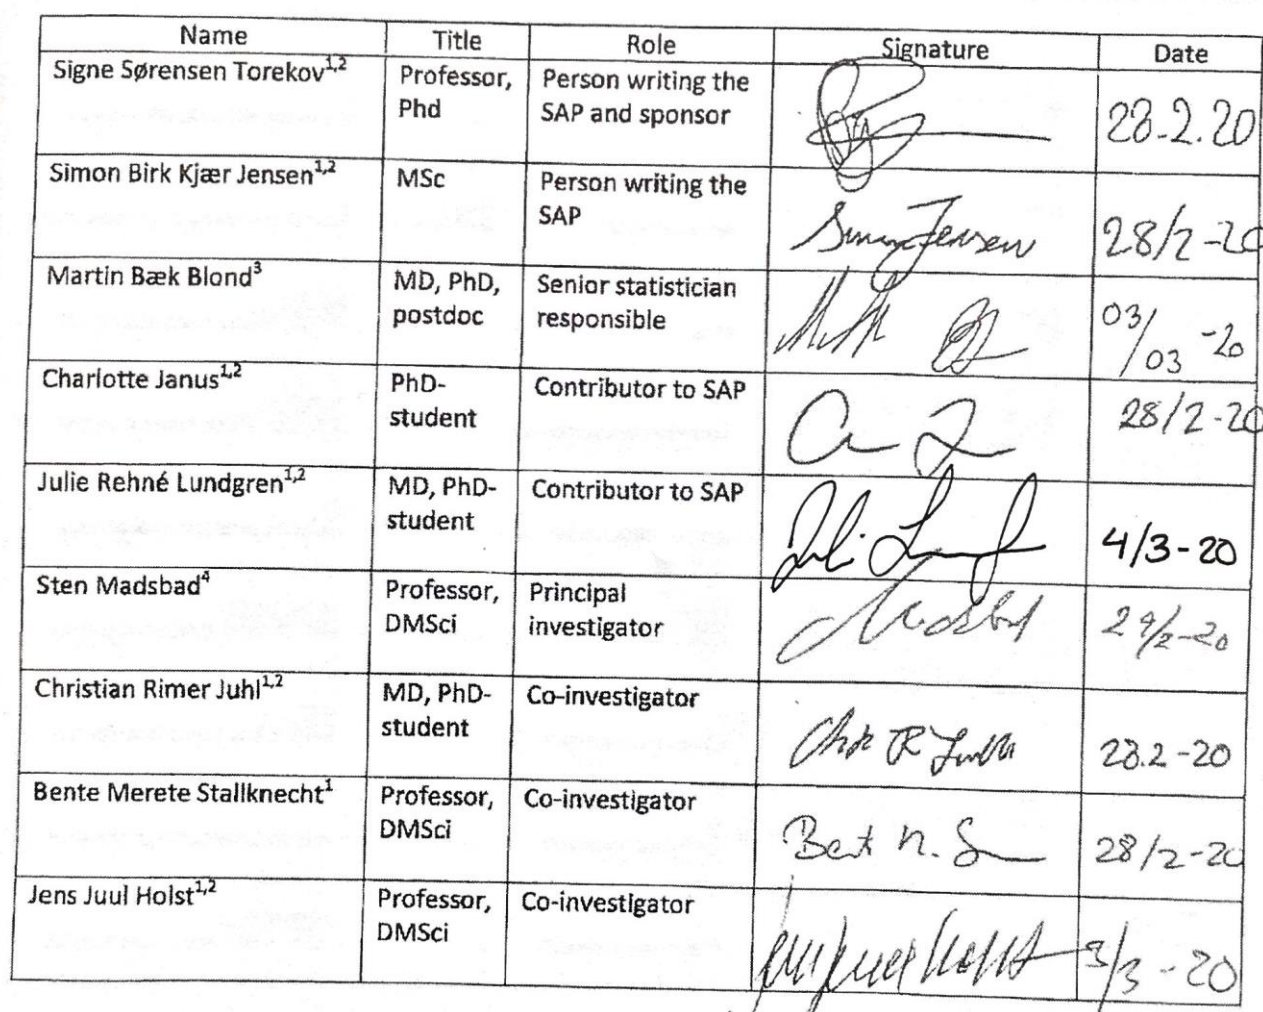 Name Title Role Signature Date
Signe Sørensen Torekov1,2 Professor, Person writing the
Phd SAP and sponsor 28.2.20
Simon Birk Kjær Jensen1,2 MSc Person writing the
SAP Simon Jensen 28/2-20
Martin Bæk Blond3 MD, PhD, Senior statistician
postdoc responsible 03/03-20
Charlotte Janus1,2 PhD- Contributor to SAP
student 28/2-20
Julie Rehné Lundgren1,2 MD, PhD- Contributor to SAP
student 4/3-20
Sten Madsbad4 Professor, Principal
DMSci investigator Madsbad 29/2-20
Christian Rimer Juhl1,2 MD, PhD- Co-investigator
student 28.2-20
Bente Merete Stallknecht1 Professor, Co-investigator
DMSci 28/2-20
Jens Juul Holst1,2 Professor, Co-investigator
DMSci Jens Juul Holst 3/3-20